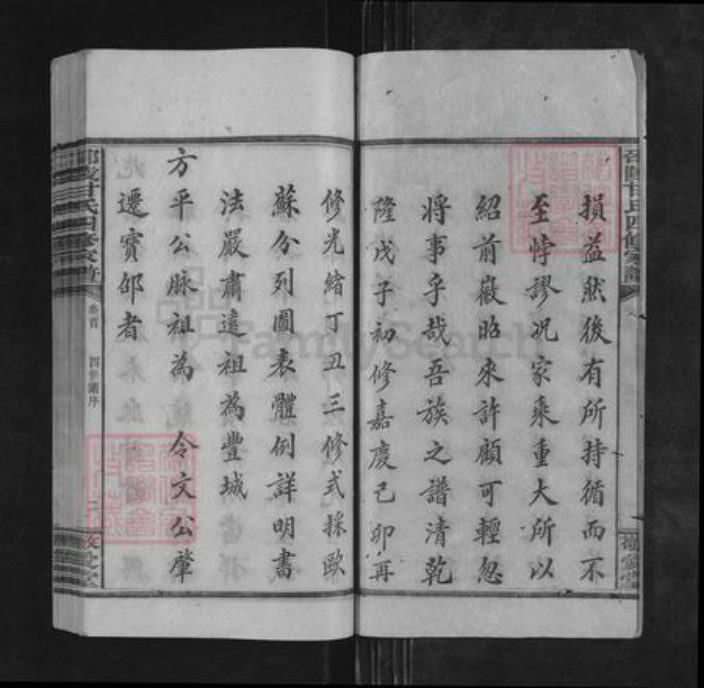 邵陵甘氏四修家譜
損益然後有所持循而不
至悖謬况家乘重大所以
紹前徽昭來許顧可輕忽
將事乎哉吾族之譜清乾
隆戊子初修嘉慶己卯再
修光緒丁丑三修式採歐
蘇分列圖表體例詳明書
法嚴肅遠祖為豐城
方平公脉祖為 令文公肇
遷寳邵者
邵陵甘氏四修家譜
卷首 四修譜序
FamilySearch